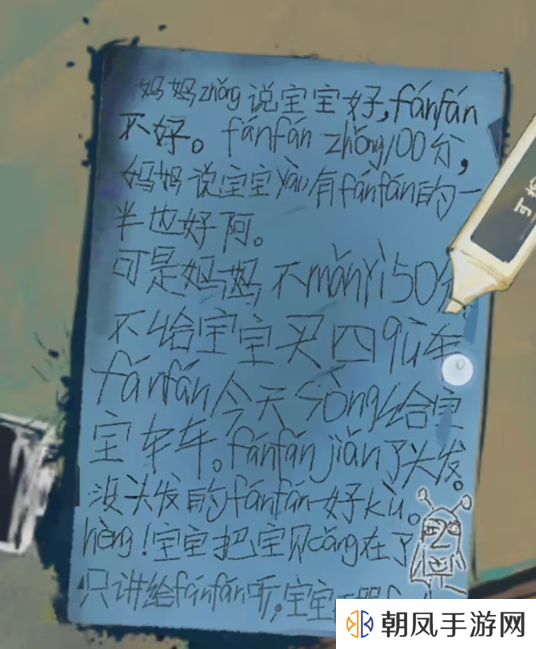 妈妈zhǒng说宝宝好,fánfán
不好。fánfán zhǒng100分,
妈妈说宝宝yàu有fánfán的一
半也好阿。
可是妈妈不mǎnyì50分
不给宝宝买四qù车
fánfán今天sòng给宝
宝车车。fánfán jiǎn了头发。
没头发的fánfán好kù。
hèng!宝宝把宝贝cáng在了
只讲给fánfán听,宝宝
朝凤手游网